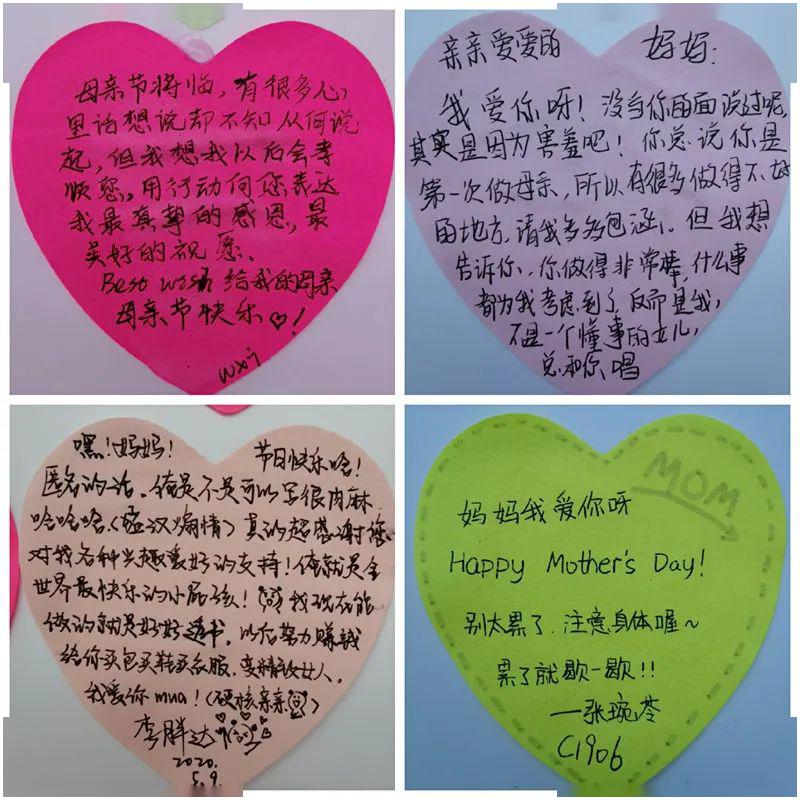 母亲节将临，有很多心
里话想说却不知从何说
起，但我想我以后会孝
顺您。用行动向您表达
我最真挚的感恩，最
美好的祝愿。
Best wish 给我的母亲
母亲节快乐♡！
wxj
亲亲爱爱的 妈妈：
我爱你呀！没当你的面说过呢，
其实是因为害羞吧！你总说你是
第一次做母亲，所以有很多做得不好
的地方，请我多多包涵。但我想
告诉你，你做得非常棒，什么事
都为我考虑到了，反而是我，
不是一个懂事的女儿，
总和你唱
嘿！妈妈！ 节日快乐哈！
匿名的话，俺是不是可以写很肉麻
哈哈哈（猛汉煽情）真的超感谢您
对我各种兴趣爱好的支持！俺就是全
世界最快乐的小屁孩！我现在能
做的就是好好读书，以后努力赚钱
给你买包买鞋买衣服，变精致女人。
我爱你 mua！（硬核亲亲）
李胖达
2020.
5.9.
MOM
妈妈我爱你呀
Happy Mother's Day!
别太累了，注意身体喔～
累了就歇一歇!!
——张琬苓
C1906